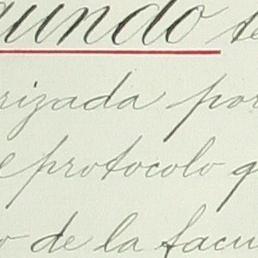 gundo te
rizada por
e protocolo q
o de la facu